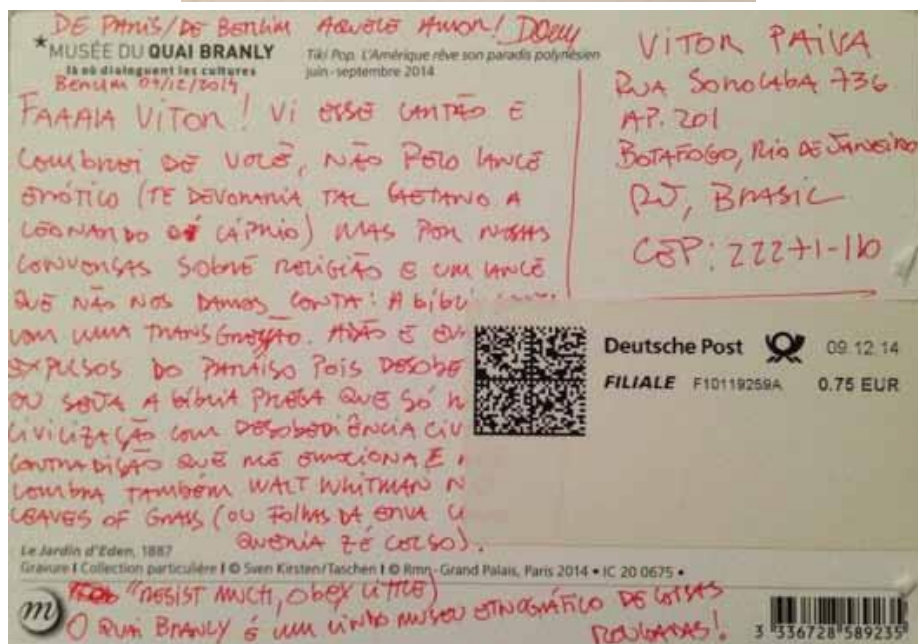 DE PARIS/DE BERLIM AQUELE AMOR!
MUSÉE DU QUAI BRANLY
là où dialoguent les cultures
Tiki Pop. L'Amérique rêve son paradis polynésien
juin - septembre 2014
BERLIM 09/12/2014
FAAALA VITOR! VI ESSE CARTÃO E
LEMBREI DE VOCÊ, NÃO PELO LANCE
ERÓTICO (TE DEVORARIA TAL CAETANO A
LEONARDO DI CÁPRIO) MAS POR NOSSAS
CONVERSAS SOBRE RELIGIÃO E UM LANCE
QUE NÃO NOS DAMOS CONTA: A BÍBLI
COM UMA TRANSGRESSÃO. ADÃO E
EXPULSOS DO PARAÍSO POIS DESOBE
OU SEJA A BÍBLIA PREGA QUE SÓ
CIVILIZAÇÃO COM DESOBEDIÊNCIA CIV
CONTRADIÇÃO QUE ME EMOCIONA E
LEMBRA TAMBÉM WALT WHITMAN N
LEAVES OF GRASS (OU FOLHAS DA ERVA
QUERIA ZÉ CELSO).
Le Jardin d'Eden, 1887
Gravure I Collection particulière I © Sven Kirsten/Taschen I © Rmn - Grand Palais, Paris 2014 • IC 20 0675 •
"RESIST MUCH, OBEY LITTLE)
O QUAI BRANLY É UM LINDO MUSEU ETNOGRÁFICO DE COISAS
ROUBADAS!
VITOR PAIVA
RUA SOROCABA 736
AP. 201
BOTAFOGO, RIO DE JANEIRO
RJ, BRASIL
CEP: 22271-110
Deutsche Post 09.12.14
FILIALE F10119259A 0.75 EUR
m
3 336728 589235